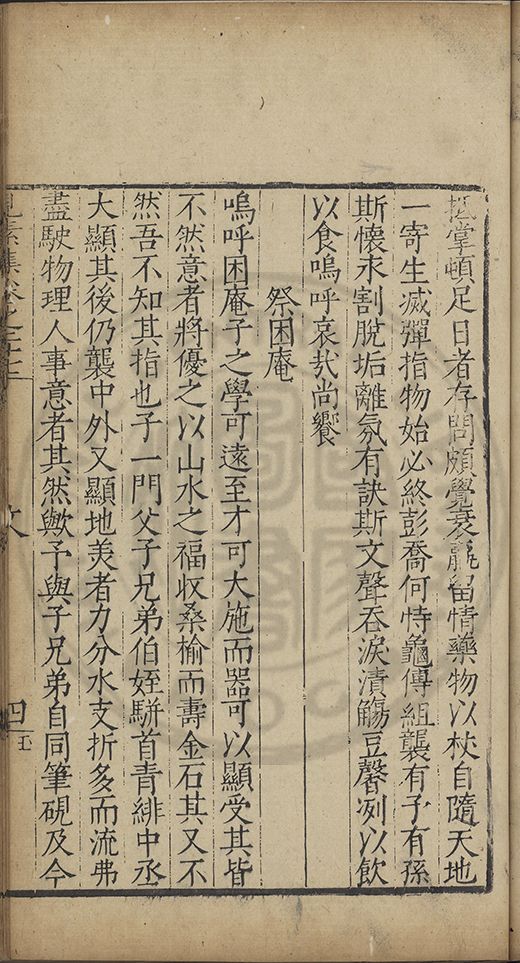 抵掌頓足日者存問頗覺衰羸留情藥物以杖自隨天地
一寄生滅彈指物始必終彭喬何恃龜傳組襲有子有孫
斯懷永割脫垢離氛有訣斯文聲吞淚漬觴豆馨冽以飲
以食嗚呼哀哉尚饗
祭困庵
嗚呼困庵子之學可遠至才可大施而器可以顯受其皆
不然意者將優之以山水之福収桑榆而壽金石其又不
然吾不知其指也子一門父子兄弟伯姪駢首青緋中丞
大顯其後仍襲中外又顯地美者力分水支折多而流弗
盡駛物理人事意者其然歟予與子兄弟自同筆硯及今
見素集卷之二十三 文 四五